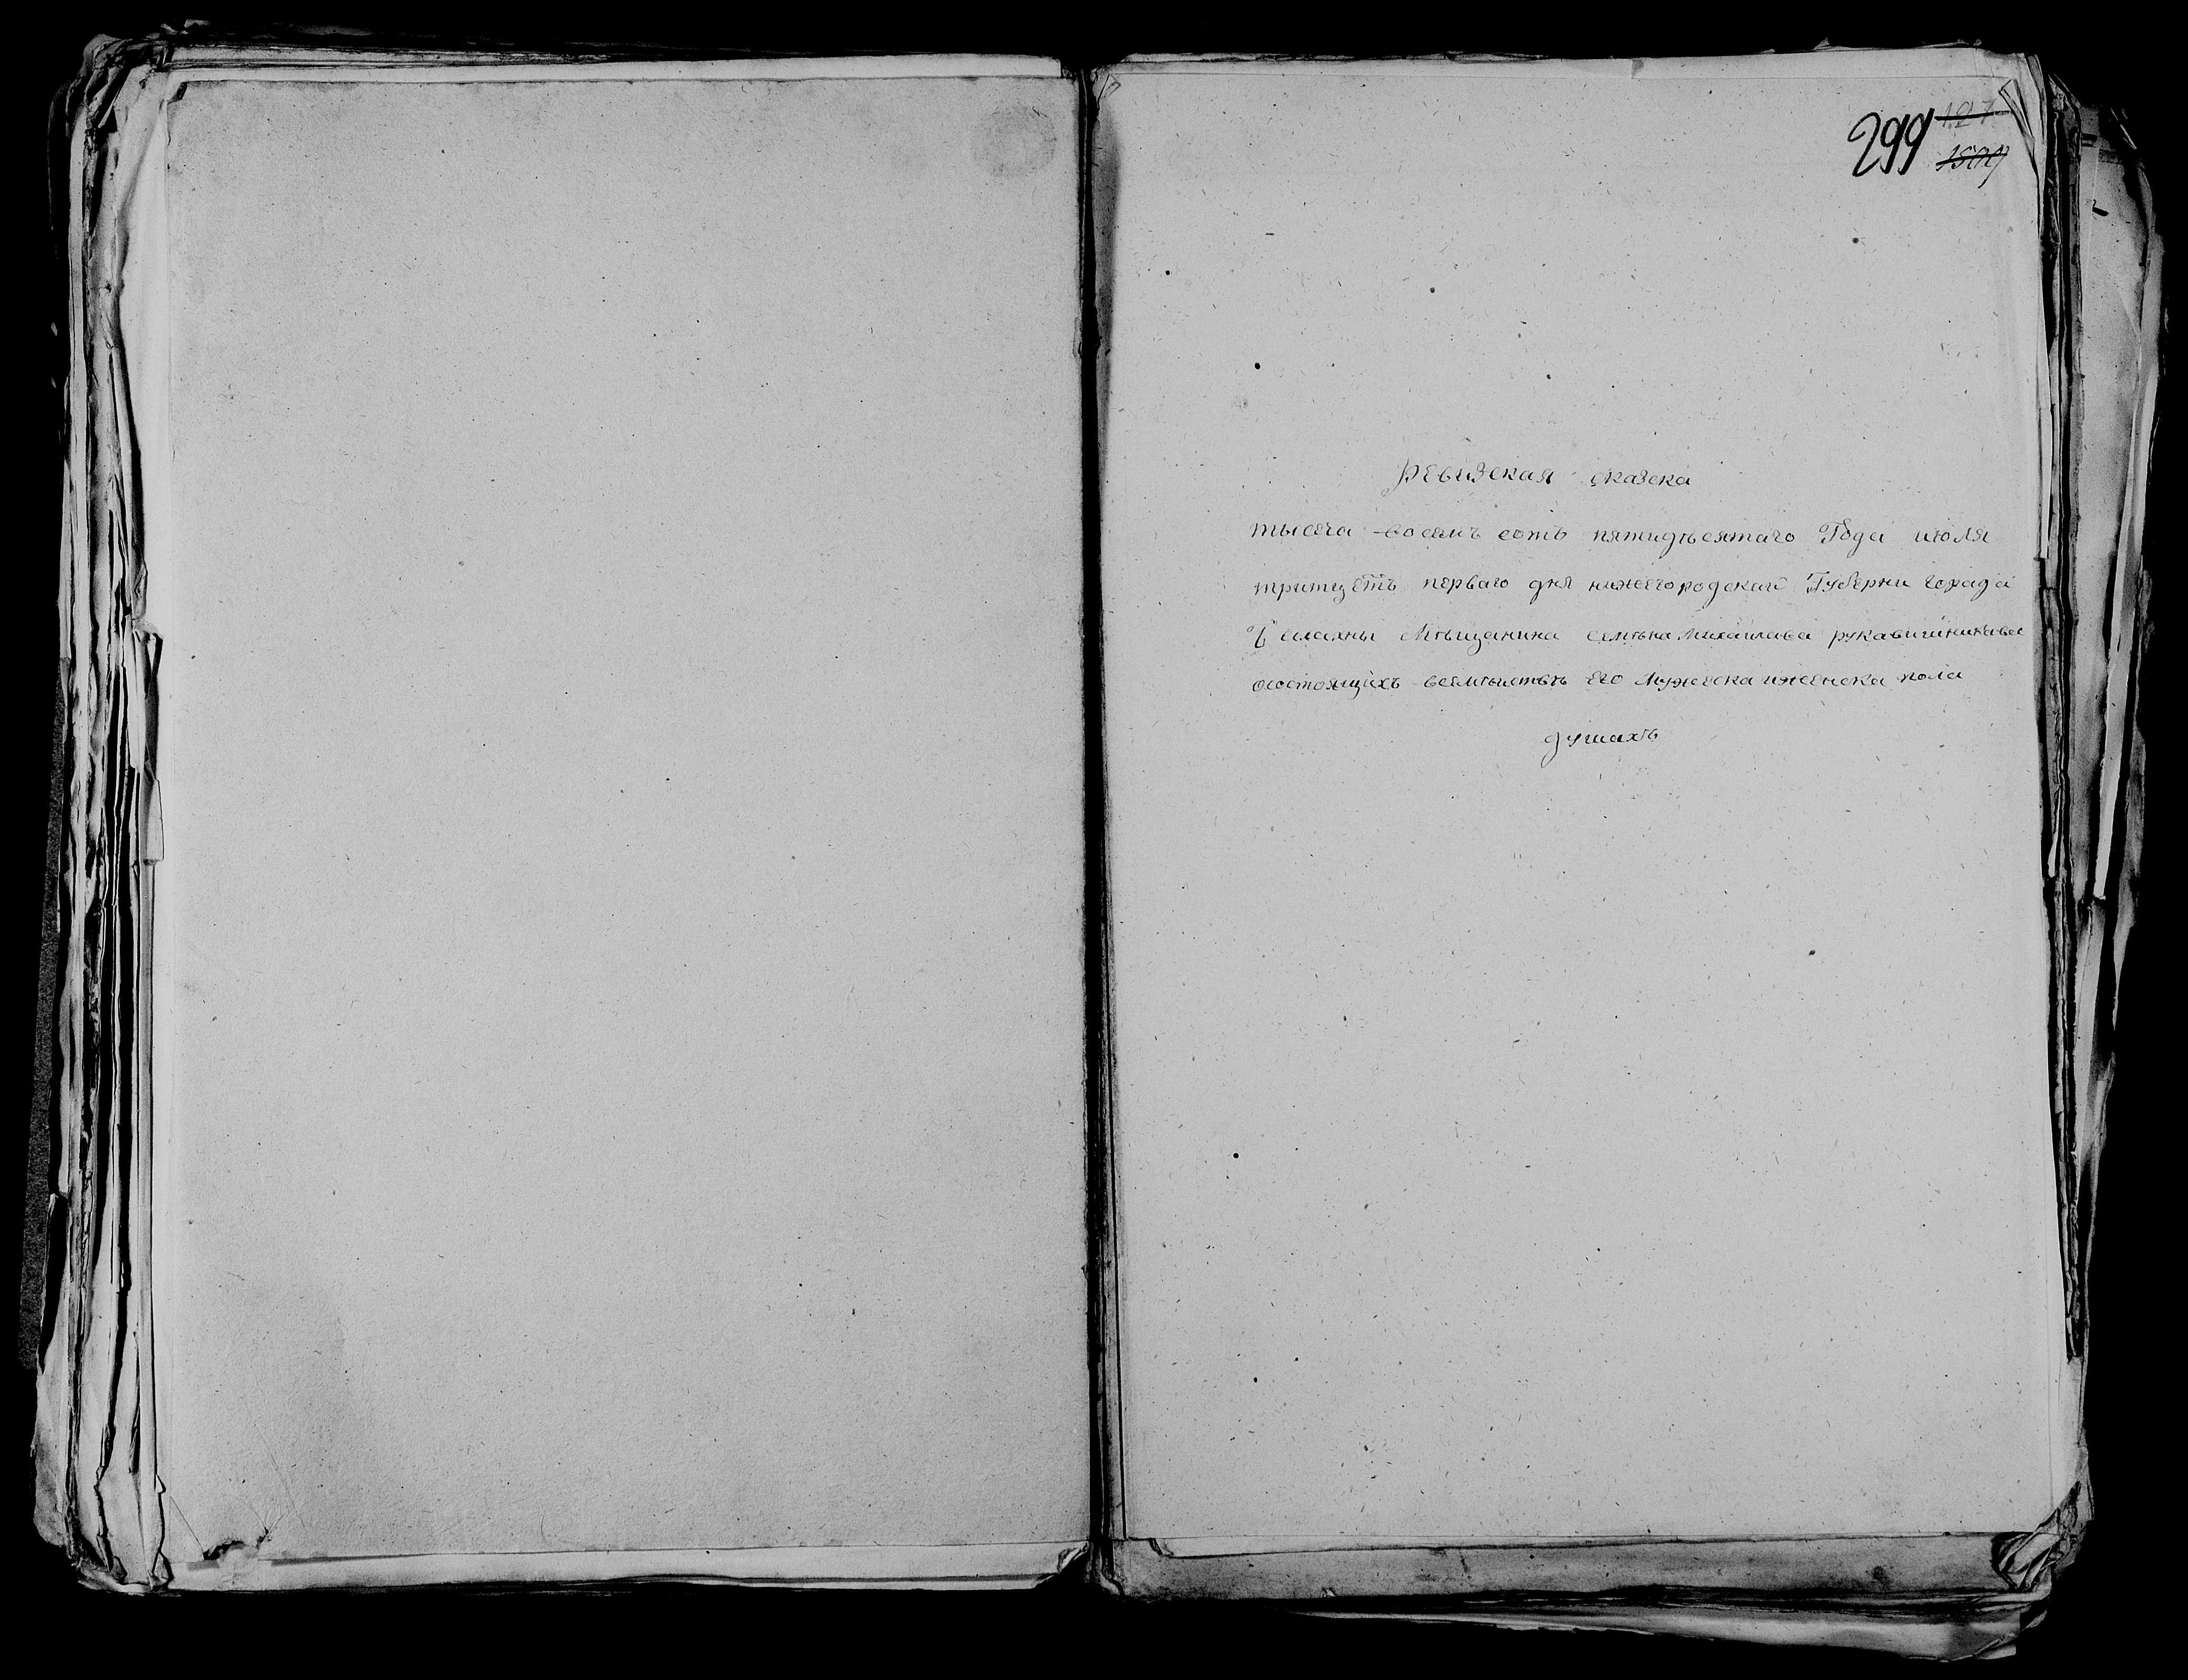 299
Ревизская сказка
тысеча восемь соть пятидѣсятаго Года июля
тритцеть перваго дня нижегородскай Губерни Горада
Балахны Мѣщанина Семѣна Михаилава рукавишникава
осостоящихъ всемѣистьвѣ Его Мужеска иженска пола
душахъ